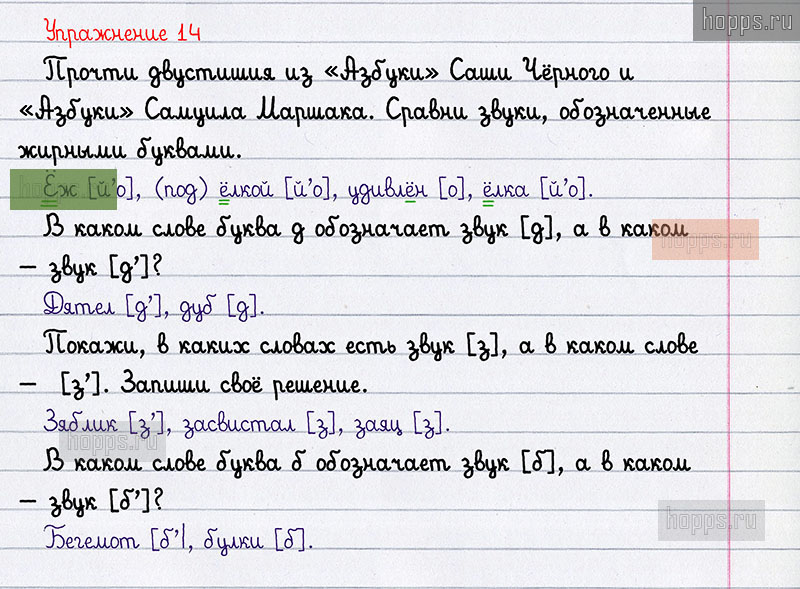 hopps.ru
Упражнение 14
Прочти двустишия из «Азбуки» Саши Чёрного и
«Азбуки» Самуила Маршака. Сравни звуки, обозначенные
жирными буквами.
Ёж [й’о], (под) ёлкой [й’о], удивлён [о], ёлка [й’о].
В каком слове буква д обозначает звук [д], а в каком
hopps.ru
– звук [д’]?
Дятел [д’], дуб [д].
Покажи, в каких словах есть звук [з], а в каком слове
– [з’]. Запиши своё решение.
Зяблик [з’], засвистал [з], заяц [з].
hopps.ru
В каком слове буква б обозначает звук [б], а в каком
– звук [б’]?
hopps.ru
Бегемот [б’], булки [б].